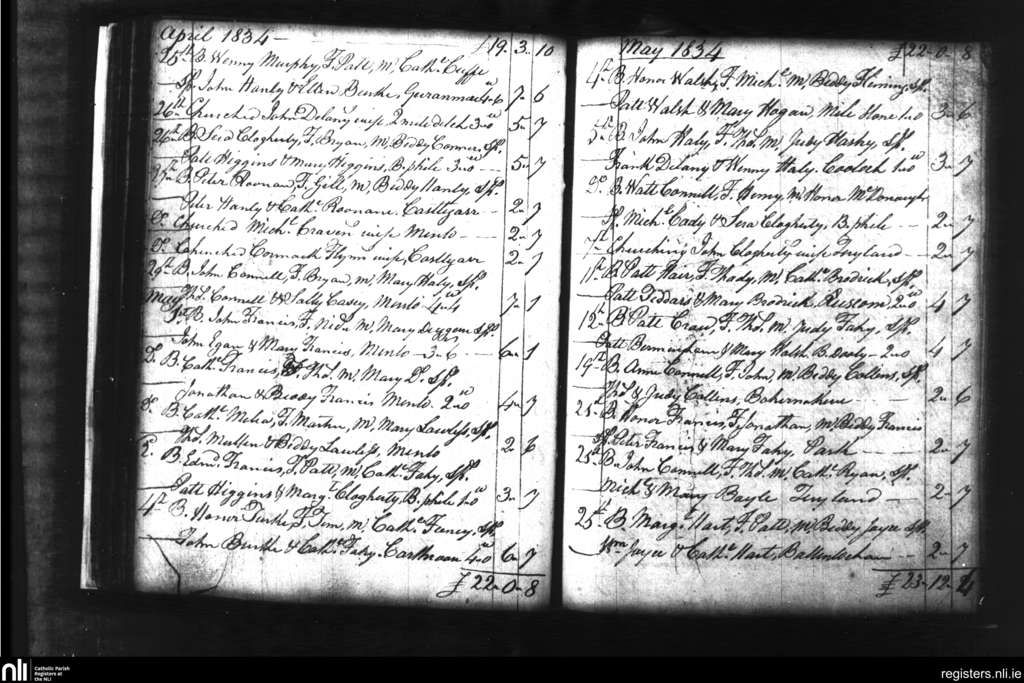 April 1834 — £19 3 10
25th B. Wenny Murphy, F. Patt, M, Cath.e Cuffe
Sp. John Hanly & Ellen Burke, 4-6 7-6
26th Churched John Delany wife 2 mile ditch 3-0 5-7
26th B. Sera Clogherty, F. Bryan, M, Biddy Connors, Sp.
Patt Higgins & Mary Higgins, B.phile 3-0 5-7
B. Peter Roonan, F. Gill, M, Biddy Hanly, Sp.
Peter Hanly & Cath.e Roonane, Castlegarr 2-7
Do. Churched Mich.l Craven wife Menlo 2-7
Do. Churched Cormack Flynn wife, Castlegarr 2-7
29th B. John Connell, F. Bryan, M, Mary Haly, Sp.
May Tho.s Connell & Sally Casey, Menlo 4-4 7-1
1st B. John Francis, F. M, Mary Sp.
John Egan & Mary Francis, Menlo 3-6 6-1
Do. B. Cath.e Francis, F. Tho.s M, Mary Do. Sp.
Jonathan & Biddy Francis Menlo 2-0 4-7
Do. B. Cath.e Melia, F. Martin, M, Mary Lawless, Sp.
Tho.s Mullen & Biddy Lawless, Menlo 2-6
Do. B. Edm.d Francis, F. Patt, M, Cath.e Fahy, Sp.
Patt Higgins & Marg.t Clogherty, B.phile 3-7
4th B. Honor F. Tim, M, Cath.e Sp.
John Burke & Cath.e Fahy, 4-0 6-7
£22-0-8
May 1834 £22-0-8
4th B. Honor Walsh, F. Mich.l M, Biddy Fleming, Sp.
Patt Walsh & Mary Hogan, Mile 3-6
5th B. John Haly, F. Tho.s M, Judy Sp.
Frank Delany & Wenny Haly, Cooloch 3-7
Do. B. Watt Connell, F. Henry, M, Honor McDonough
Sp. Mich.l Eady & Sera Clogherty, B.phile 2-7
7th Churching John Clogherty wife 2-7
11th B. Patt F. Thady, M, Cath.e Brodrick, Sp.
Patt & Mary Brodrick, 2-0 4 7
12th B. Patt F. Tho.s M, Judy Fahy, Sp.
Patt Bermingham & Mary Walsh, B. Dooly 2-0 4 7
19th B. Anne Connell, F. John, M, Biddy Collens, Sp.
Tho.s & Judy Collens, 2-6
25th B. Honor Francis, F. Jonathan, M, Biddy Francis
Sp. Peter Francis & Mary Fahy, Park 2-7
25th B. John Connell, F. Tho.s M, Cath.e Ryan, Sp.
Mich.l & Mary Bayle 2-7
25th B. Marg.t Hart, F. Patt, M, Biddy Joyce Sp.
Wm Joyce & Cath.e Hart, 2-7
£23-12-4
nli
Catholic Parish
Registers at
the NLI
registers.nli.ie